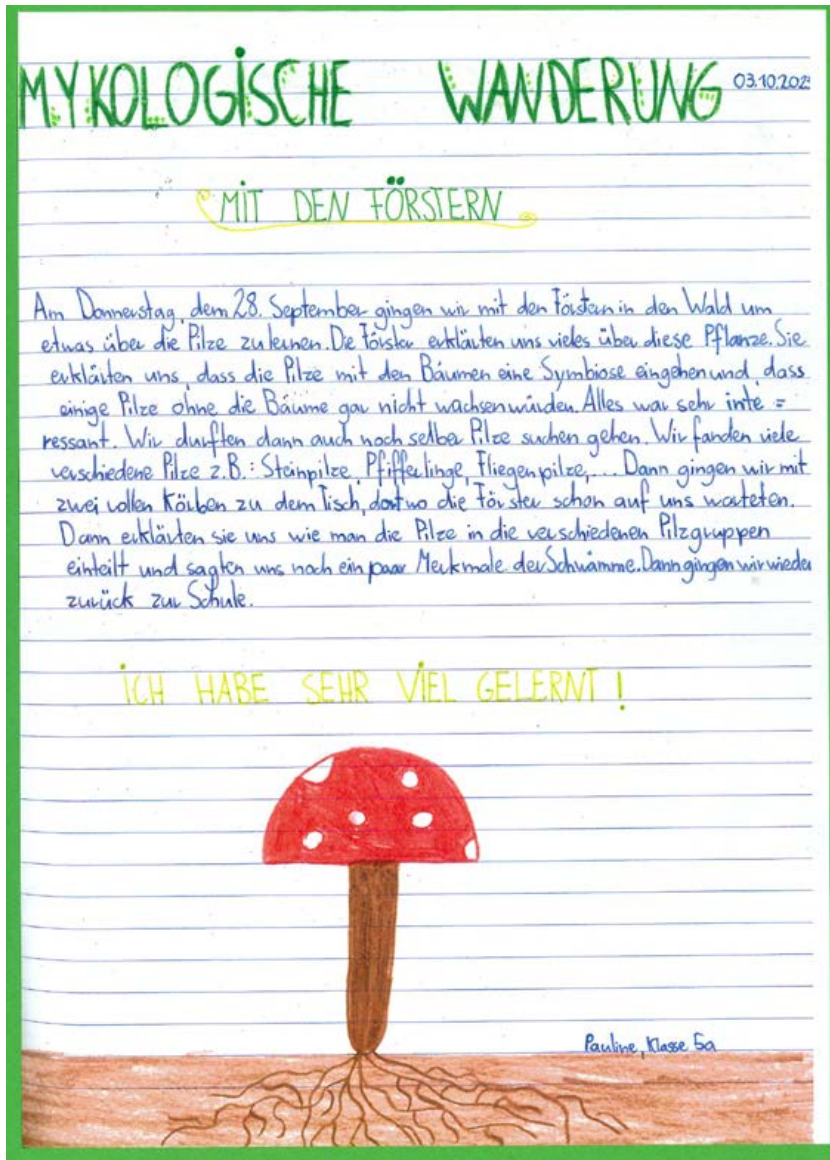 MYKOLOGISCHE WANDERUNG 03.10.202
MIT DEN FÖRSTERN
Am Donnerstag, dem 28. September gingen wir mit den Förstern in den Wald um
etwas über die Pilze zu lernen. Die Förster erklärten uns vieles über diese Pflanze. Sie
erklärten uns, dass die Pilze mit den Bäumen eine Symbiose eingehen und, dass
einige Pilze ohne die Bäume gar nicht wachsen würden. Alles war sehr inte =
ressant. Wir durften dann auch noch selber Pilze suchen gehen. Wir fanden viele
verschiedene Pilze z.B.: Steinpilze, Pfifferlinge, Fliegenpilze,... Dann gingen wir mit
zwei vollen Körben zu dem Tisch, dort wo die Förster schon auf uns warteten.
Dann erklärten sie uns wie man die Pilze in die verschiedenen Pilzgruppen
einteilt und sagten uns noch ein paar Merkmale der Schwämme. Dann gingen wir wieder
zurück zur Schule.
ICH HABE SEHR VIEL GELERNT!
Pauline, Klasse 5a